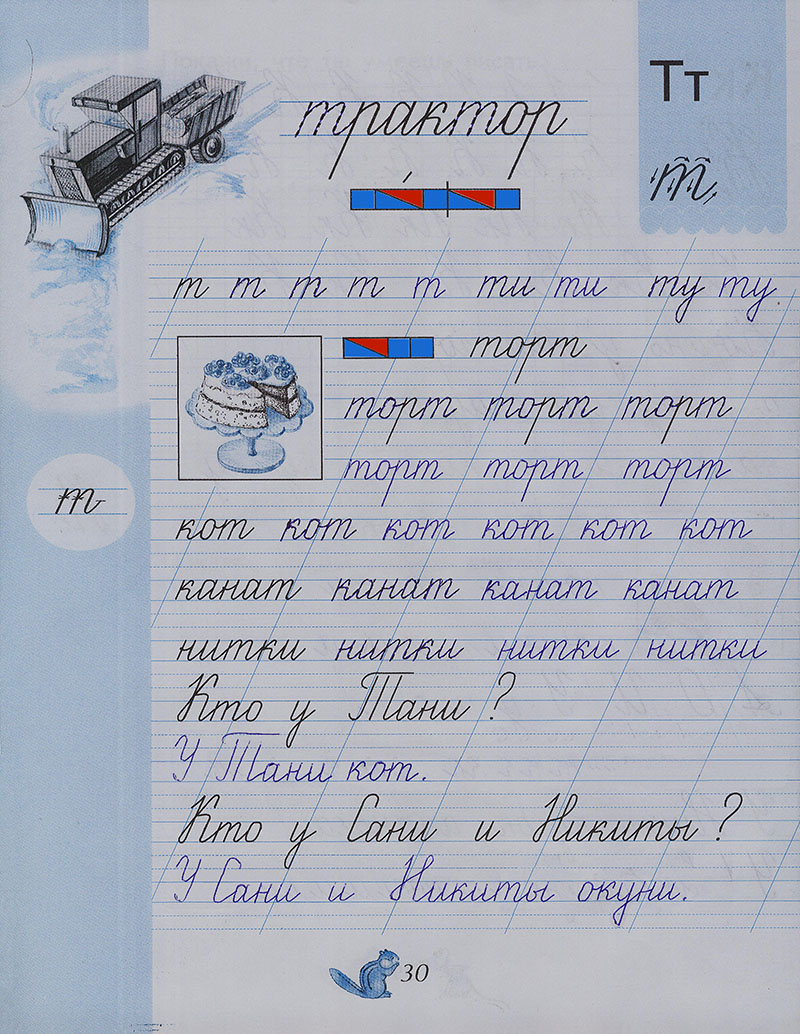 Тт
трактор
т
т т т т т ти ти ту ту
торт
торт торт торт
торт торт торт
т
кот кот кот кот кот кот
канат канат канат канат
нитки нитки нитки нитки
Кто у Тани ?
У Тани кот.
Кто у Сани и Никиты ?
У Сани и Никиты окуни.
30